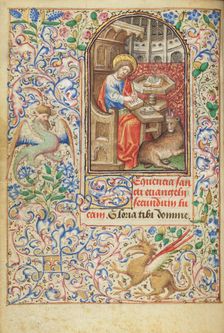 Sequencia san
cti euangelii
secundum lu
cam Gloria tibi domine